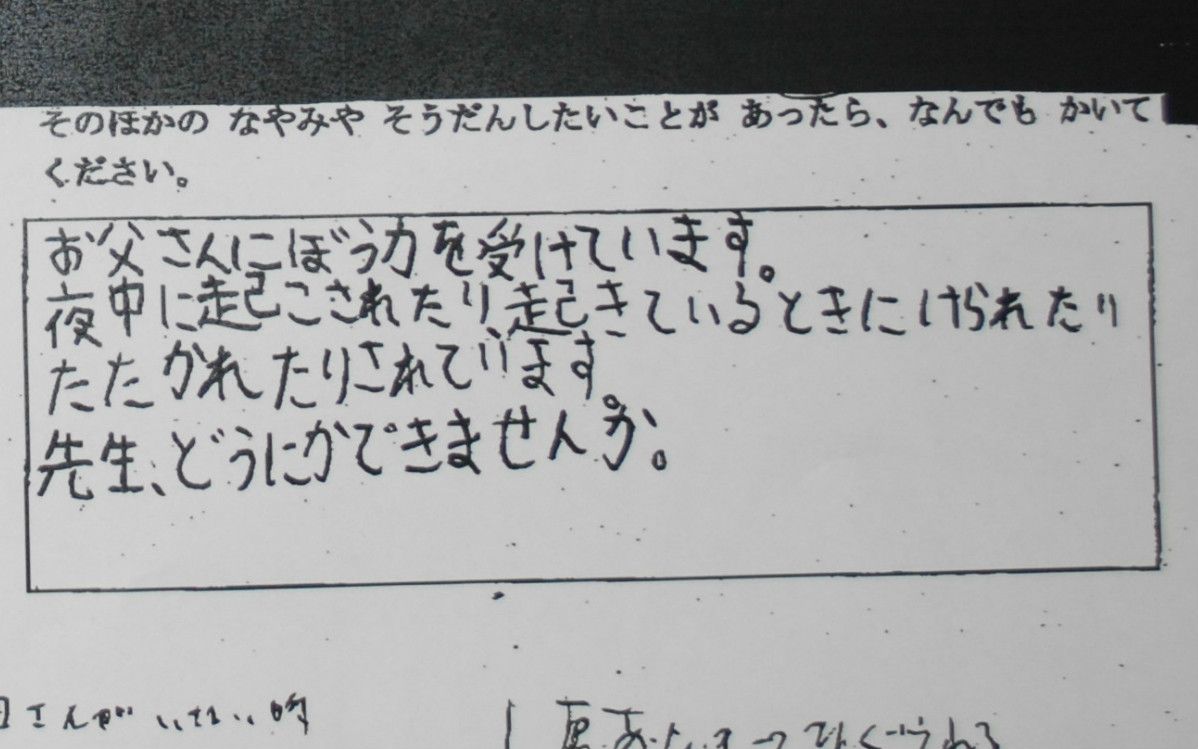 そのほかの なやみや そうだんしたいことが あったら、なんでも かいて
ください。
お父さんにぼう力を受けています。
夜中に起こされたり、起きているときにけられたり
たたかれたりされています。
先生、どうにかできませんか。
さんがいない時